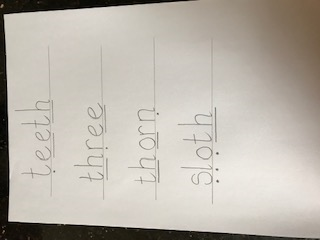 teeth
three
thorn
sloth